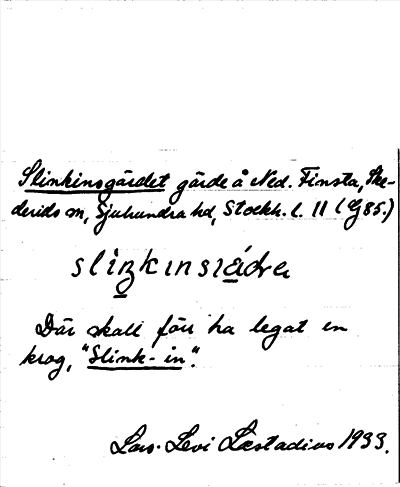 Slinkinsgärdet gärde å Ned. Finsta, Ske-
derids sn, Sjuhundra hd, Stockh. l. 11 (G85.)
Där skall förr ha legat en
krog, "Slink-in".
Lars-Levi Læstadius 1933.